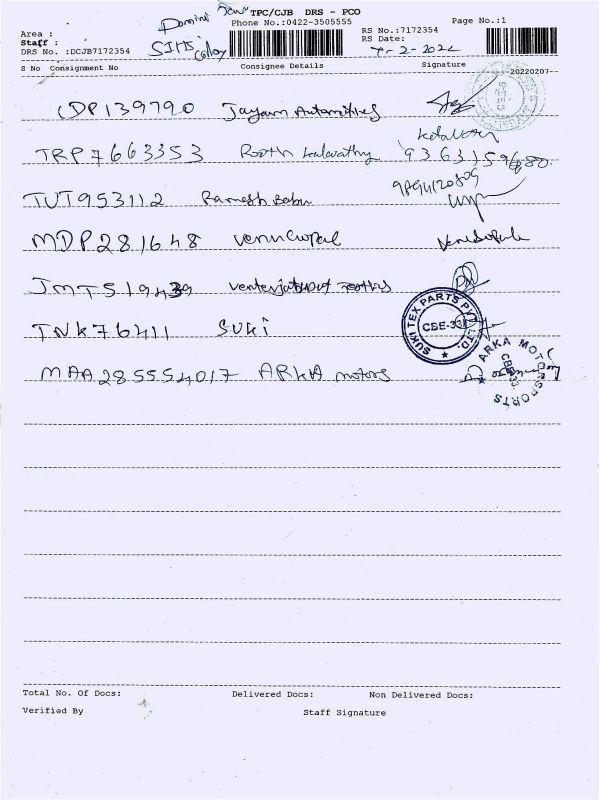 TPC/CJB DRS - PCO
Phone No.:0422-3505555
Page No.:1
Area :
Staff :
DRS No. :DCJB7172354
SIMS
RS No.:7172354
RS Date:
7-2-2022
S No Consignment No
Consignee Details
Signature
20220207-
CDP139790 Jayam Automotives
TRP7663353
9363159680
TUT953112 Ramesh Babu
9894120809
MDP281648 Venu Gopal
Venugopal
JMT519439
TNK76411 SUKI
SUKI TEX PARTS PVT. LTD.
CBE-33
MAA285554017 ARKA motors
ARKA MOTORSPORTS
CBE-33
Total No. Of Docs:
Delivered Docs:
Non Delivered Docs:
Verified By
Staff Signature